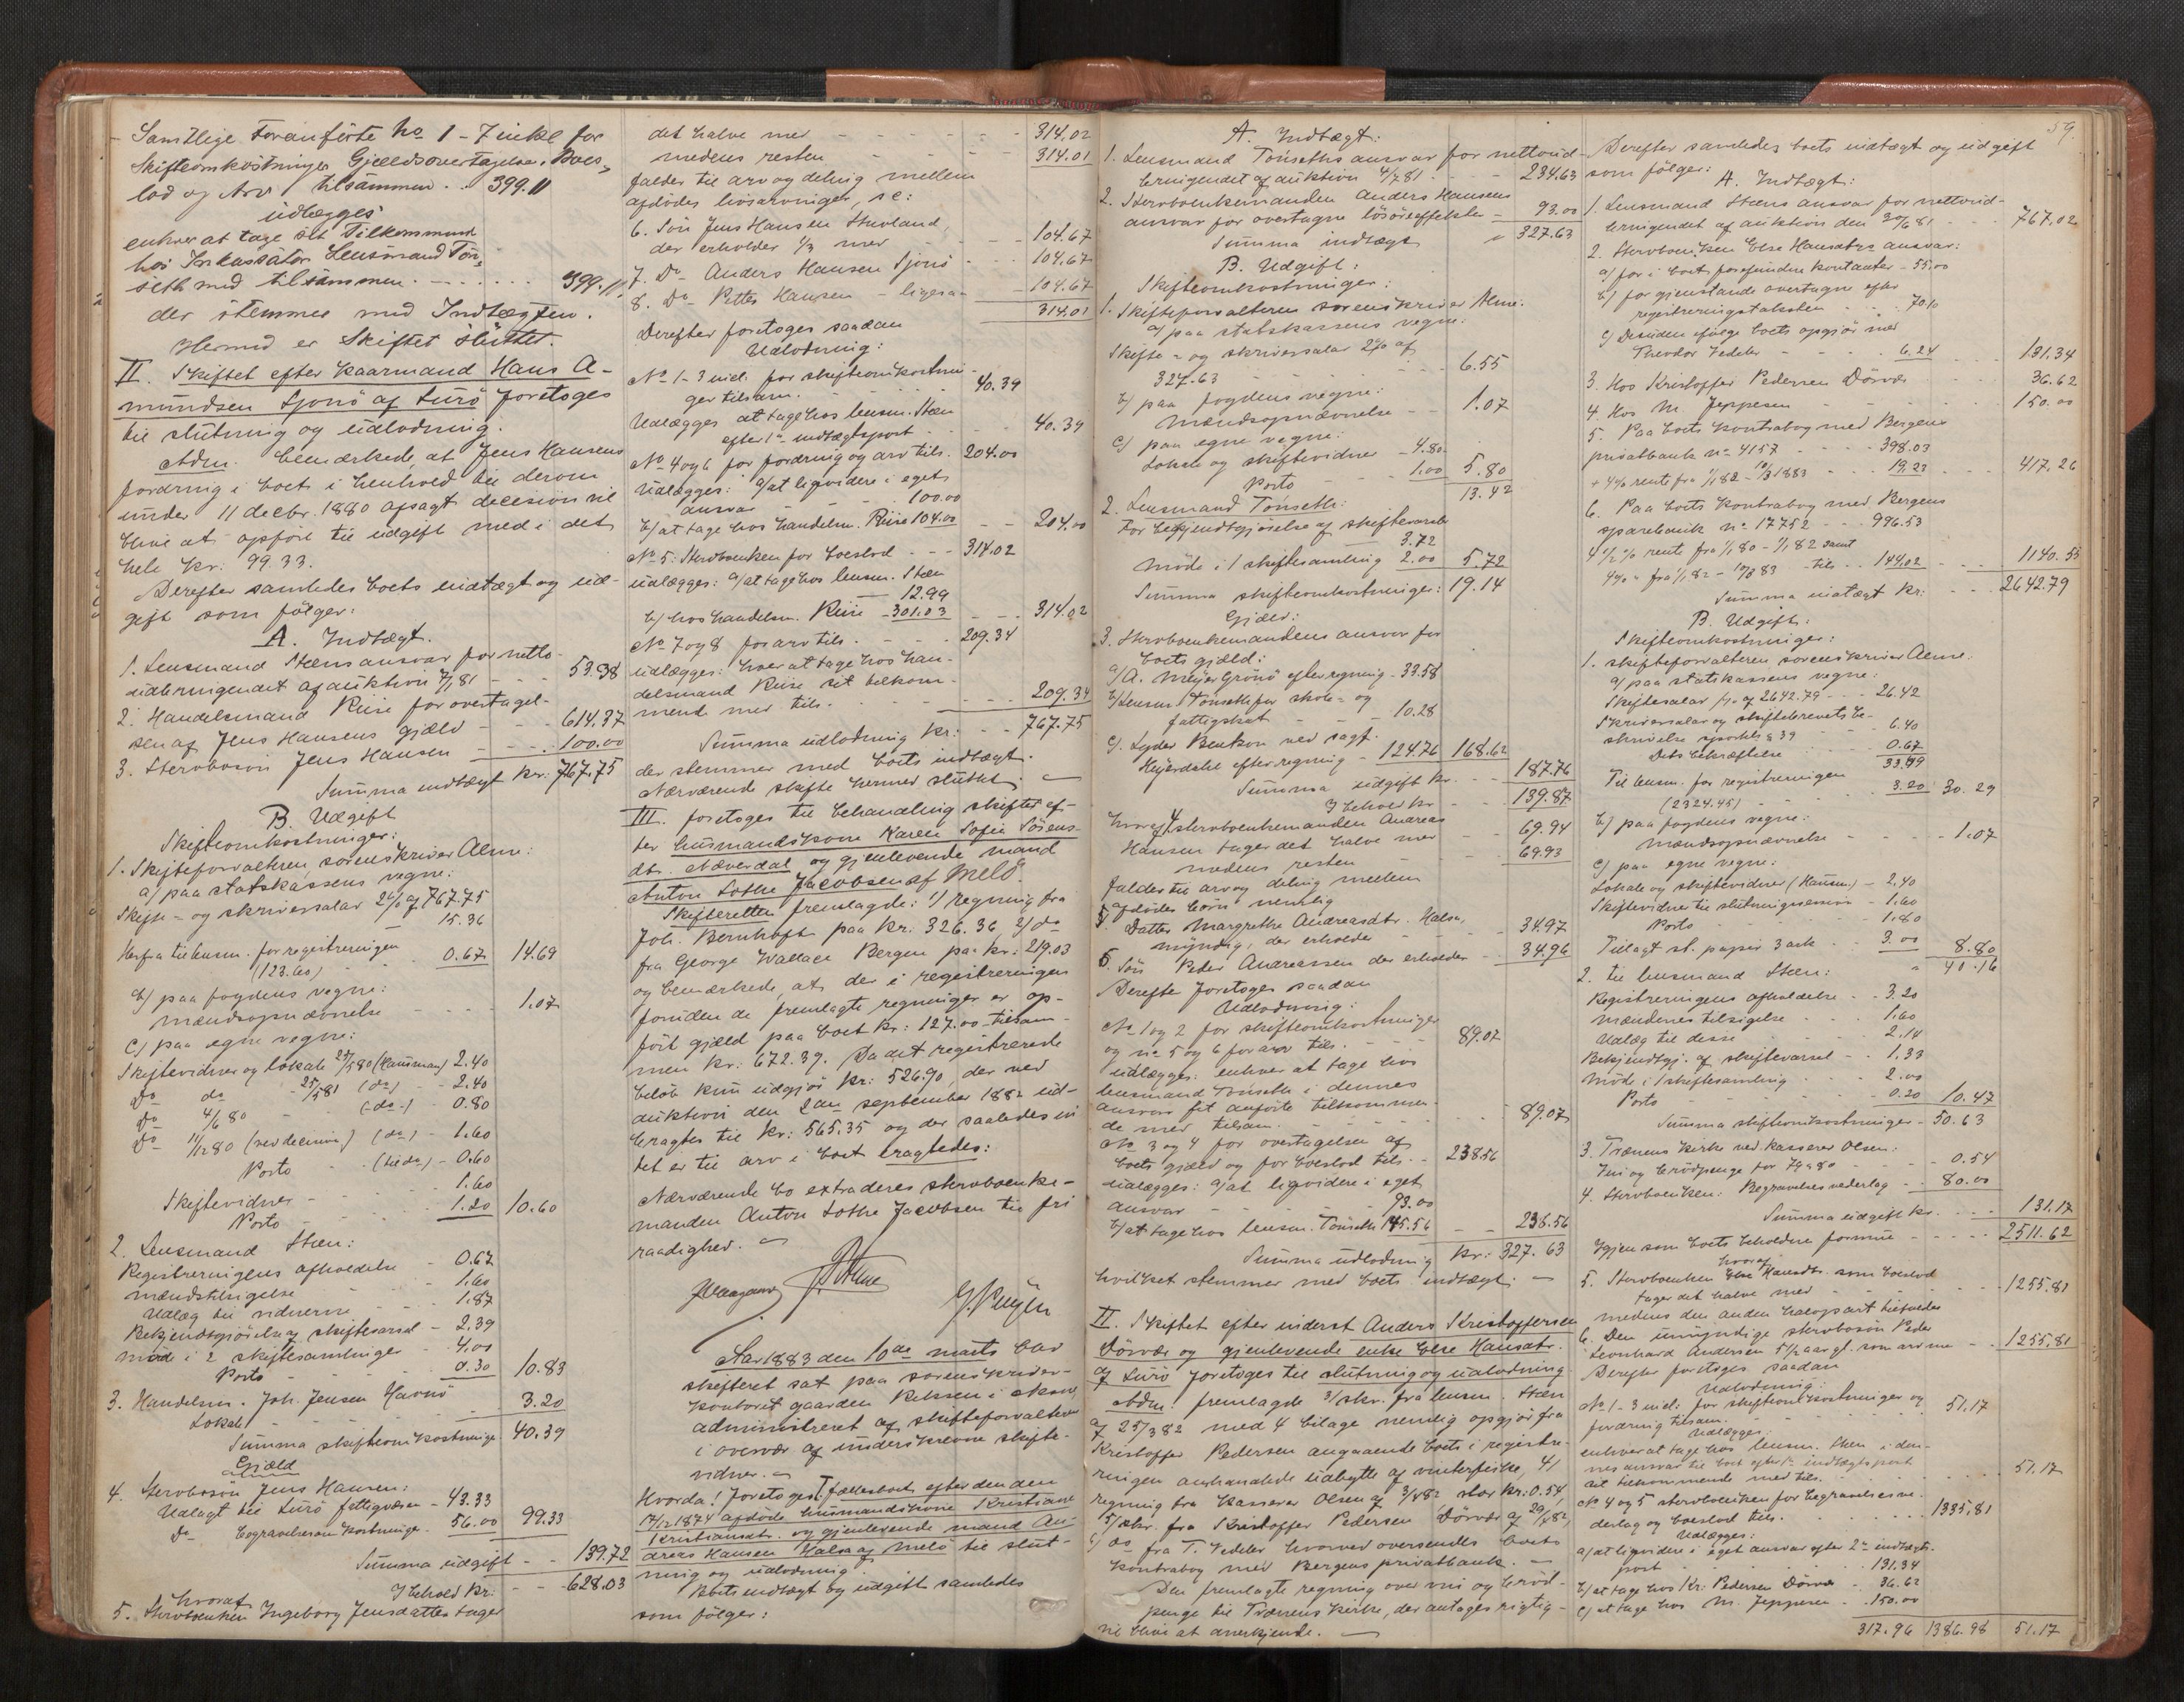 Samtlige Foranførte No 1-7 inkl for
Skifteomkostninger Gjældsovertagelse, Boes-
lod og Arv tilsammen . . 399.11
udlægges
enhver at tage sit Tilkommend
hos Inkassator Lensmand Tön-
seth med tilsammen. - . . . . . . 399.11,
der stemmer med Indtægten.
Hermed er Skiftet sluttet.
II. Skiftet efter kaarmand Hans A-
mundsen Sjonö af Lurö foretoges
til slutning og udlodning.
Adm. bemærkede, at Jens Hansens
fordring i boet i henhold til derom
under 11 decbr. 1880 afsagt decision vil
blive at opføre til udgift med i det
hele kr. 99.33.
Derefter samledes boets indtægt og ud-
gift som følger:
A. Indtægt.
1. Lensmand Stens ansvar for netto-
udbringendet af auktion 7/7 81 - - - 53.38
2. Handelsmand Riise for overtagel-
sen af Jens Hansens gjæld - - - 614.37
3. Sterboson Jens Hansen - - - 100.00
Summa indtægt kr: 767.75
B. Udgift
Skifteomkostninger:
1. Skifteforvalteren, sorenskriver Alme:
a) paa statskassens vegne:
Skifte- og skriversalar 2% af 767.75
15.36
Herfra til lensm. for registreringen
(123.60) 0.67 14.69
b) paa fogdens vegne:
mændsopnævnelse - - - - 1.07
c) paa egne vegne:
Skiftevidner og lokale 25/5 80 (Hansman) 2.40
Do do 25/5 81 (do) - 2.40
Do 4/6 80 - (-do-) - 0.80
Do 11/12 80 (ved decision) (do) - 1.60
Porto - (til do) - 0.60
Skiftevidner - - - 1.60
Porto - - - 1.20 10.60
2. Lensmand Sten:
Registreringens afholdelse - 0.67
mændstilsigelse - 1.60
Udlæg til vidnerne - 1.87
Bekjendtgjørelse af skiftevarsel - 2.39
møde i 2 skiftesamlinger - 4.00
Porto - - - 0.30 10.83
3. Handelsm. Joh. Jensen Havnö
Lokale 3.20
Summa skifteomkostninger 40.39
Gjæld
4. Sterboson Jens Hansen:
Udlagt til Lurö fattigvæsen - 43.33
Do begravelsesomkostninger - 56.00 99.33
Summa udgift - - 139.72
I behold kr: - - 628.03
hvoraf
5. Sterboenken Ingeborg Jensdatter tager
det halve med - - - - 314.02
medens resten - - - - 314.01
falder til arv og deling mellem
afdødes livsarvinger, sc:
6. Sön Jens Hansen Stuvland,
der erholder 1/3 med - - - 104.67
7. Do Anders Hansen Sjonö - - - 104.67
8. Do Petter Hansen - ligesaa - 104.67
314.01
Derefter foretoges saadan
Udlodning:
No 1-3 incl. for skifteomkostnin-
ger tilsam. - - - 40.39
Udlægges at tage hos lensm. Sten
efter 1ste indtægtspost - - - 40.39
No 4 og 6 for fordring og arv tils. 204.00
Udlægges: a) at liqvidere i eget
ansvar - - - 100.00
b) at tage hos handelsm. Riise 104.00 - - 204.00
No 5: Sterboenken for boeslod - - - 314.02
udlægges: a) at tage hos lensm. Sten
- 12.99
b) hos handelsm. Riise - 301.03 - - - 314.02
No 7 og 8 for arv tils. - - - 209.34
udlægges: hver at tage hos han-
delsmand Riise sit tilkom-
mende med tils. - - - 209.34
Summa udlodning kr: - - 767.75
der stemmer med boets indtægt.
Nærværende skifte hermed sluttet. -
III. foretoges til behandling skiftet ef-
ter husmandskone Karen Sofie Sörens-
dtr. Næverdal og gjenlevende mand
Anton Lothe Jacobsen af Melö.
Skifteretten fremlagde: 1) regning fra
Joh. Bernhoft paa kr. 326.36, 2) do
fra George Wallace Bergen paa kr: 219.03
og bemærkede, at der i registreringen
foruden de fremlagte regninger er op-
ført gjæld paa boet kr: 127.00 - tilsam-
men kr. 672.39. Da det registrerede
beløb kun udgjør kr: 526.90, der ved
auktion den 2den september 1882 ud-
bragtes til kr: 565.35 og der saaledes in
tet er til arv i boet eragtedes:
Nærværende bo extraderes sterboenke-
manden Anton Lothe Jacobsen til fri
raadighed. -
Aar 1883 den 10de marts blev
skifteret sat paa sorenskriver-
kontoret gaarden
administreret af skifteforvalteren
i overvær af underskrevne skifte-
vidner. -
Hvorda! Foretoges: I. fællesboet efter den den
17/12 1874 afdøde husmandskone Kristiane
Kristiansdtr. og gjenlevende mand An-
dreas Hansen Halsa af Melö til slut-
ning og udlodning.
Boets indtægt og udgift samledes
som følger:
A. Indtægt:
1. Lensmand Tönseths ansvar for nettoud-
bringendet af auktion 4/7 81 - - - 234.63
2. Sterboenkemanden Anders Hansens
ansvar for overtagne lösöreeffekter - 93.00
Summa indtægt " 327.63
B. Udgift:
Skifteomkostninger:
1. Skifteforvalteren sorenskriver Alme:
a) paa statskassens vegne:
Skifte- og skriversalar 2% af
327.63 - - - 6.55
b) paa fogdens vegne:
Mændsopnævnelse - - 1.07
c) paa egne vegne:
Lokale og skiftevidner - 4.80
Porto 1.00 5.80
13.42
2. Lensmand Tönseth:
For bekjendtgjørelse af skiftevarsler
3.72
Möde i 1 skiftesamling 2.00 5.72
Summa skifteomkostninger: 19.14
Gjæld:
3. Sterboenkemandens ansvar for
boets gjæld:
a) A. Meijer Grönö efter regning - 33.58
b) Lensm. Tönseth for skole- og
fattigskat - - - 10.28
c) Lyder Bentson ved sagf.
Heijerdahl efter regning - 124.76 168.62
Summa udgift kr. - - 187.76
I behold kr - - - 139.87
hvoraf 4 sterboenkemanden Andreas
Hansen tager det halve med 69.94
medens resten - - - 69.93
falder til arv og deling mellem
afdødes börn nemlig
5. Datter Margrethe Andreasdtr. Halsa,
myndig, der erholder - - 34.97
6. Sön Peder Andreassen der erholder - 34.96
Derefter foretoges saadan
Udlodning:
No 1 og 2 for skifteomkostninger
og no 5 og 6 for arv tils. - - - 89.07
udlægges: enhver at tage hos
lensmand Tönseth i dennes
ansvar sit anførte tilkommen-
de med tilsam. - - - 89.07
No 3 og 4 for overtagelsen af
boets gjæld og for boeslod tils. - 238.56
udlægges: a) at liqvidere i eget
ansvar - - - 93.00
b) at tage hos lensm. Tönseth 145.56 - - 238.56
Summa udlodning kr: 327.63
hvilket stemmer med boets indtægt. -
II. Skiftet efter inderst Anders Kristoffersen
Dörvær og gjenlevende enke Else Hansdtr.
af Lurö foretoges til slutning og udlodning
Adm. fremlagde 3/ skr. fra lensm. Sten
af 25/3 82 med 4 bilage nemlig opgjør fra
Kristoffer Pedersen angaaende boets i registre-
ringen omhandlede udbytte af vinterfiske, 4)
regning fra kasserer Olsen af 3/4 82 stor kr: 0.54,
5) skr. fra Kristoffer Pedersen Dörvær af 29/1 82,
6) do fra T. Vedeler hvorved oversendes boets
kontrabog med Bergens privatbank. -
Den fremlagte regning over vin og bröd-
penge til Trænens kirke, der antages rigtig-
vil blive at anerkjende. -
59.
Derefter samledes boets indtægt og udgift
som følger:
A. Indtægt:
1. Lensmand Stens ansvar for nettoud-
bringendet af auktion den 30/6 81 - - 767.02
2. Sterboenken Else Hansdtrs ansvar:
a) for i boet forefundne kontanter - 55.00
b) for gjenstande overtagne efter
registreringstaksten . . . 70.10
c) Desuden ifølge boets opgjør med
Theodor Vedeler - - - 6.24 131.34
3. Hos Kristoffer Pedersen Dörvær 36.62
4 Hos M. Jeppesen - - - 150.00
5. Paa boets kontrabog med Bergens
privatbank no 4157 - - - 398.03
+ 4% rente fra 1/1 82 - 10/3 1883 - - - 19.23 417.26
6. Paa boets kontrabog med Bergens
sparebank no 17752 - - - 996.53
4 1/2 % rente fra 1/1 80 - 1/1 82 samt
4% " fra 1/1 82 - 10/3 83 - tils - - 144.02 - - 1140.55
Summa indtægt kr: - - - 2642.79
B. Udgift:
Skifteomkostninger:
1. skifteforvalteren sorenskriver Alme:
a) paa statskassens vegne:
Skiftesalar 1% af 2642.79 - - - 26.42
Skriversalar og skiftebrevets be-
skrivelse sportel § 39 - 6.40
Dets bekræftelse - - - 0.67
33.49
Til lensm. for registreringen
(2324.45) - - - 3.20 30.29
b) paa fogdens vegne:
mændsopnævnelse - - - 1.07
c) paa egne vegne:
Lokale og skiftevidner (Hansen) - 2.40
Skiftevidner til slutningssession - 1.60
Porto - - - 1.80
Tillagt st. papir 3 ark . . 3.00 8.80
" 40.16
2. til lensmand Sten:
Registreringens afholdelse - - 3.20
mændenes tilsigelse - - - 1.60
Udlæg til disse - - - 2.14
Bekjendtgj. af skiftevarsel - - 1.33
Möde i 1 skiftesamling - - - 2.00
Porto - - - 0.20 10.47
Summa skifteomkostninger - 50.63
3. Trænens kirke ved kasserer Olsen:
Vin og brödpenge for 79 & 80 - - - 0.54
4. Sterboenken: Begravelsesvederlag - - 80.00
Summa udgift kr. - - - 131.17
Igjen som boets beholdne formue - - - 2511.62
hvoraf
5. Sterboenken Else Hansdtr. som boeslod
tager det halve med - - - 1255.81
medens den anden halvpart tilfalder
6. Den umyndige sterboson Peder
Leonhard Andersen 5 1/2 aar gl. som arv med - - 1255.81
Derefter foretoges saadan
Udlodning:
No 1-3 incl: for skifteomkostninger og
fordring tilsam. 51.17
Udlægges:
enhver at tage hos lensm. Sten i den-
nes ansvar til boet efter 1ste indtægtspost
sit tilkommende med tils. 51.17
No 4 og 5 sterboenken for begravelsesve-
derlag og boeslod tils. - - - 1335.81
Udlægges:
a) at liqvidere i eget ansvar efter 2den indtægts-
post - - - 131.34
b) at tage hos Kr: Pedersen Dörvær - 36.62
c) at tage hos M. Jeppesen - - 150.00
317.96 1386.98 51.17